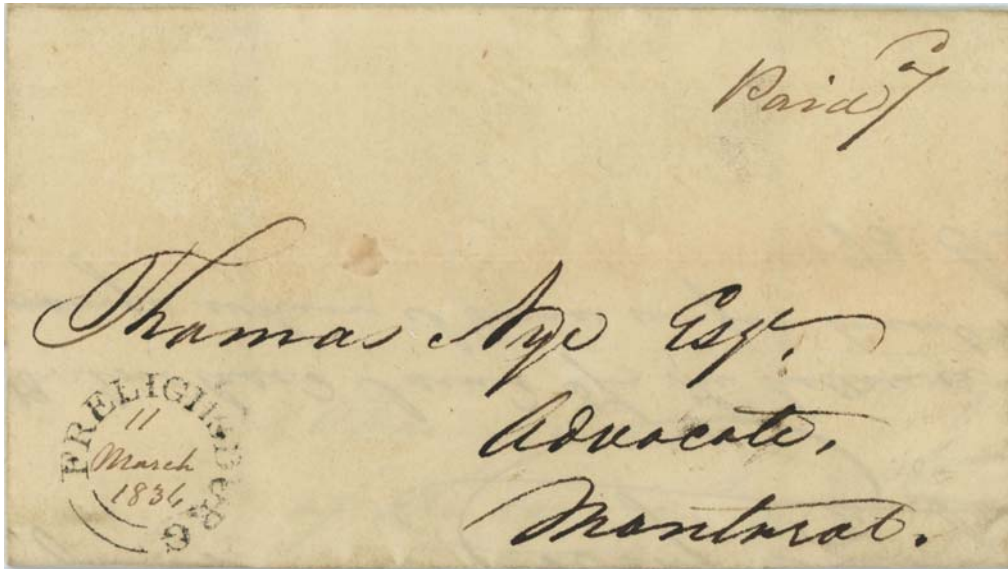 Paid 7
Thomas Nye Esqr.
Advocate,
Montreal.
FRELIGHSBURG
11
March
1834